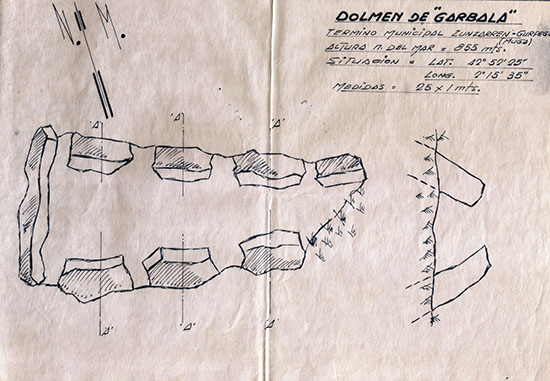 DOLMEN DE "GARBALA"
TERMINO MUNICIPAL ZUNZARREN-GURPEGUI
(MUGA)
ALTURA N. DEL MAR = 855 mts.
SITUACION = LAT. 42° 52' 25"
LONG. 2° 15' 35"
MEDIDAS = 25 x 1 mts.
N. M.
A. A. A.
A' A' A'